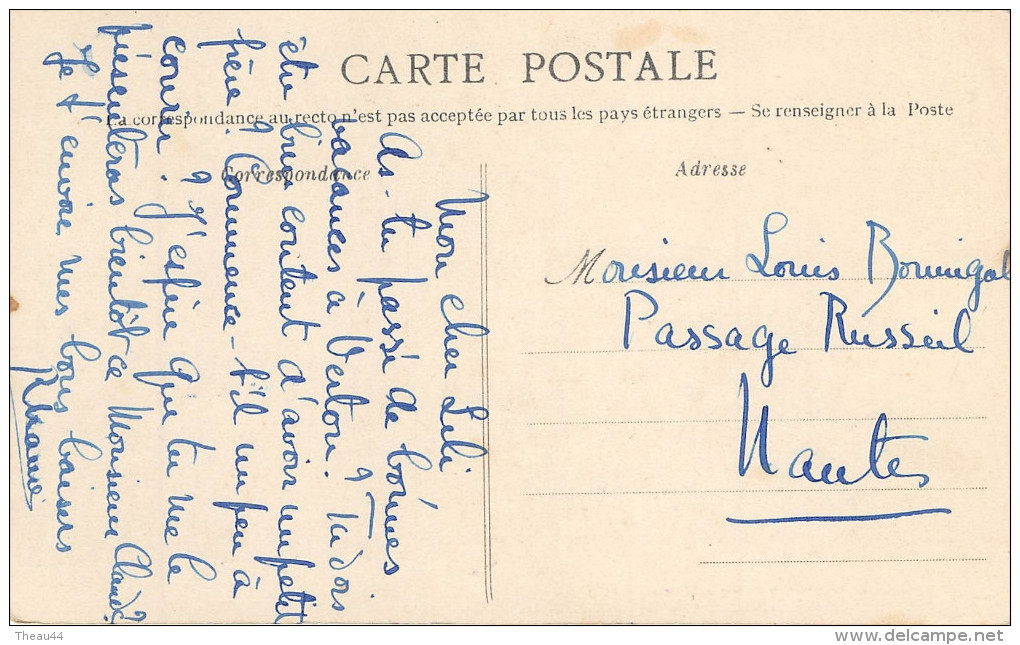 CARTE POSTALE
La correspondance au recto n'est pas acceptée par tous les pays étrangers — Se renseigner à la Poste
Correspondance
Adresse
Mon cher Lili
As-tu passé de bonnes
vacances à Vertou ? Tu dois
être bien content d'avoir un petit
frère ? Commence-t-il un peu à
courir ? J'espère que tu me le
présenteras bientôt ce Monsieur Claude ?
Je t'envoie mes bons baisers
Monsieur Louis
Passage Russeil
Nantes
Theau44
www.delcampe.net